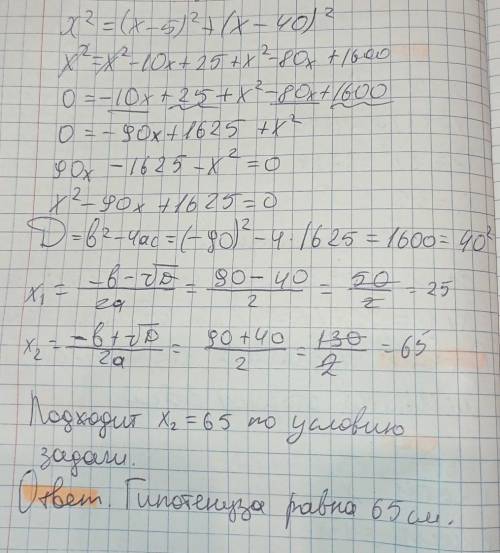 x² = (x-5)² + (x-40)²
x² = x² - 10x + 25 + x² - 80x + 1600
0 = -10x + 25 + x² - 80x + 1600
0 = -90x + 1625 + x²
90x - 1625 - x² = 0
x² - 90x + 1625 = 0
D = b² - 4ac = (-90)² - 4 · 1625 = 1600 = 40²
x₁ = (-b - √D)/2a = (90 - 40)/2 = 50/2 = 25
x₂ = (-b + √D)/2a = (90 + 40)/2 = 130/2 = 65
Подходит x₂ = 65 по условию
задачи.
Ответ. Гипотенуза равна 65 см.